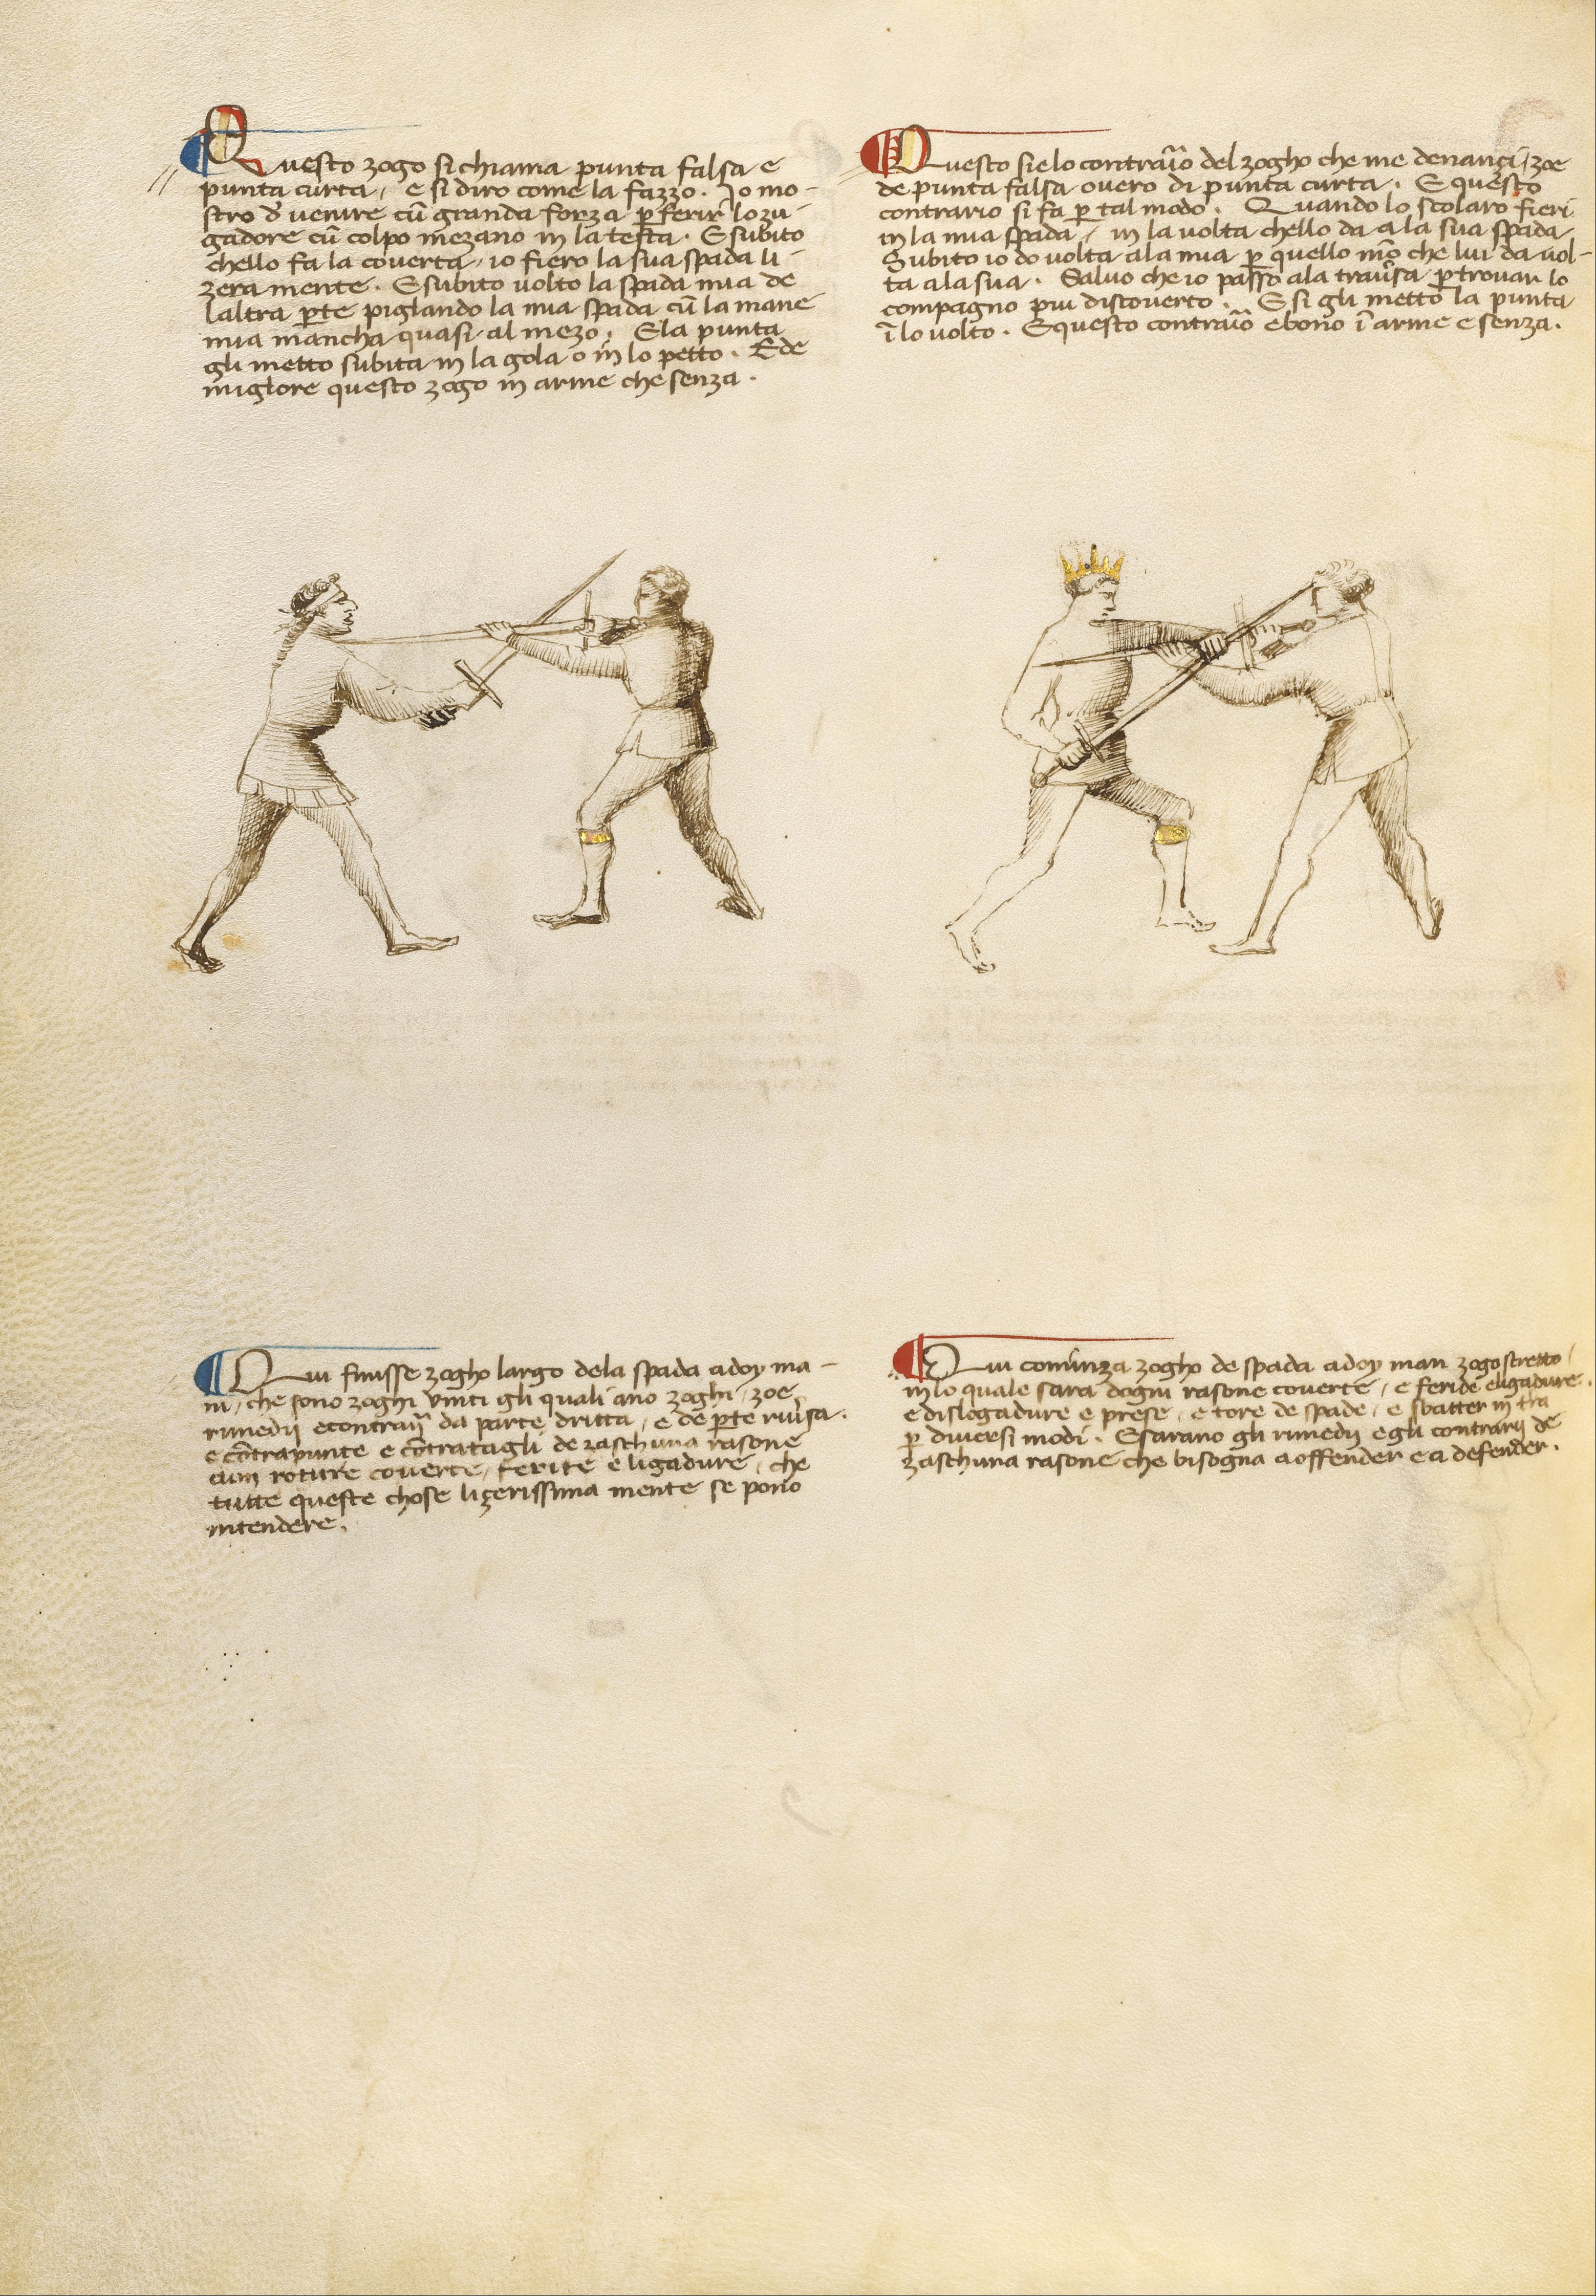 Questo zogo si chiama punta falsa e
punta curta, e si diro come la fazzo. Io mo-
stro d' venire cū granda forza p̲ ferir lo zu-
gadore cū colpo mezano in la testa. E subito
chello fa la coverta, io fiero la sua spada li-
zera mente. E subito volto la spada mia de
laltra p̲te piglando la mia spada cū la mane
mia mancha quasi al mezo. E la punta
gli metto subita in la gola o in lo petto. Ede
miglore questo zogo in arme che senza.
Questo sie lo contraio̅ del zogho che me denançi, zoe
de punta falsa overo di punta curta. E questo
contrario si fa p̲ tal modo. Quando lo scolaro fieri
in la mia spada, in la volta chello da a la sua spada
Subito io do volta ala mia p̲ quello mō che lui da vol-
ta ala sua. Salvo che io passo ala trav̄sa p̲ trovar lo
compagno piu discoverto. E si gli metto la punta
ī lo volto. E questo contraio̅ e bono ī arme e senza.
Qui finisse zogho largo dela spada a doy ma-
ni, che sono zoghi uniti gli quali ano zoghi, zoe
rimedij e contrarij da parte dritta, e de p̲te riv̄sa.
e cōtrapunte e cōtratagli de zaschuna rasone
cum roture coverte, ferire e ligadure, che
tutte queste chose lizerissima mente se pono
intendere.
Qui cominza zogho de spada a doy man zogo stretto,
in lo quale sara dogni rasone coverte, e feride e ligadure.
e dislogadure e prese, e tore de spade, e sbatter in tra
p̲ diversi modi. E sarano gli rimedij e gli contrarij de
zaschuna rasone che bisogna a offender e a defender.